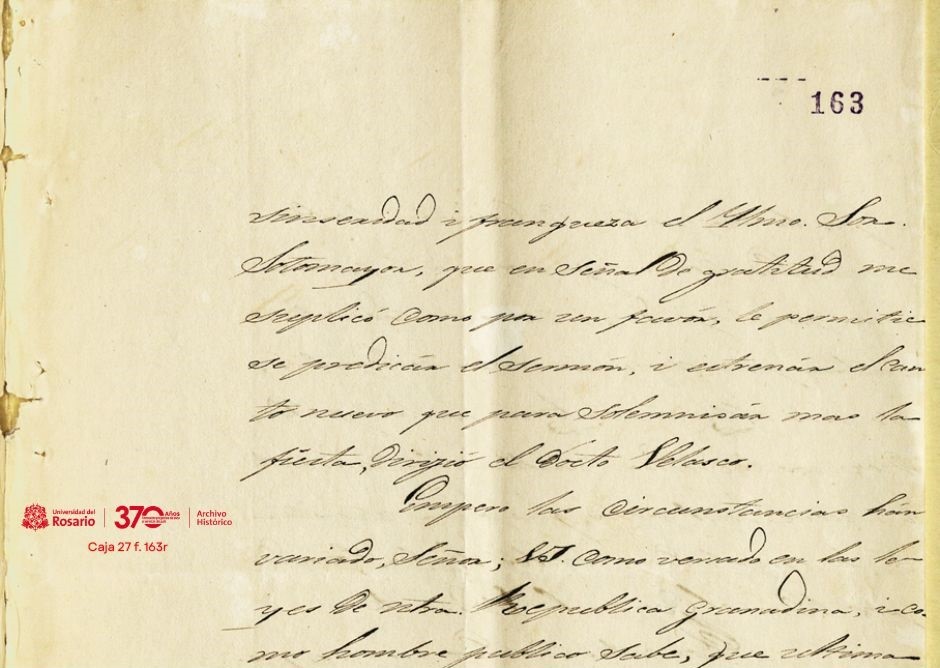 163
sinseridad i franqueza el Ylmo. Sor.
Sotomayor, que en señal de gratitud me
suplicó como por un favór, le permitie
se predicár el sermón, i estrenár el can
to nuevo que para solemnisár mas la
fiesta, dirijió el Docto Velasco.
Empero las circunstancias hán
variado, Señor; como versado en las le-
yes de ntra. Republica Granadina, i co-
mo hombre publico sabe, que ultima
Universidad del Rosario
370 Años
Archivo Histórico
Caja 27 f. 163r